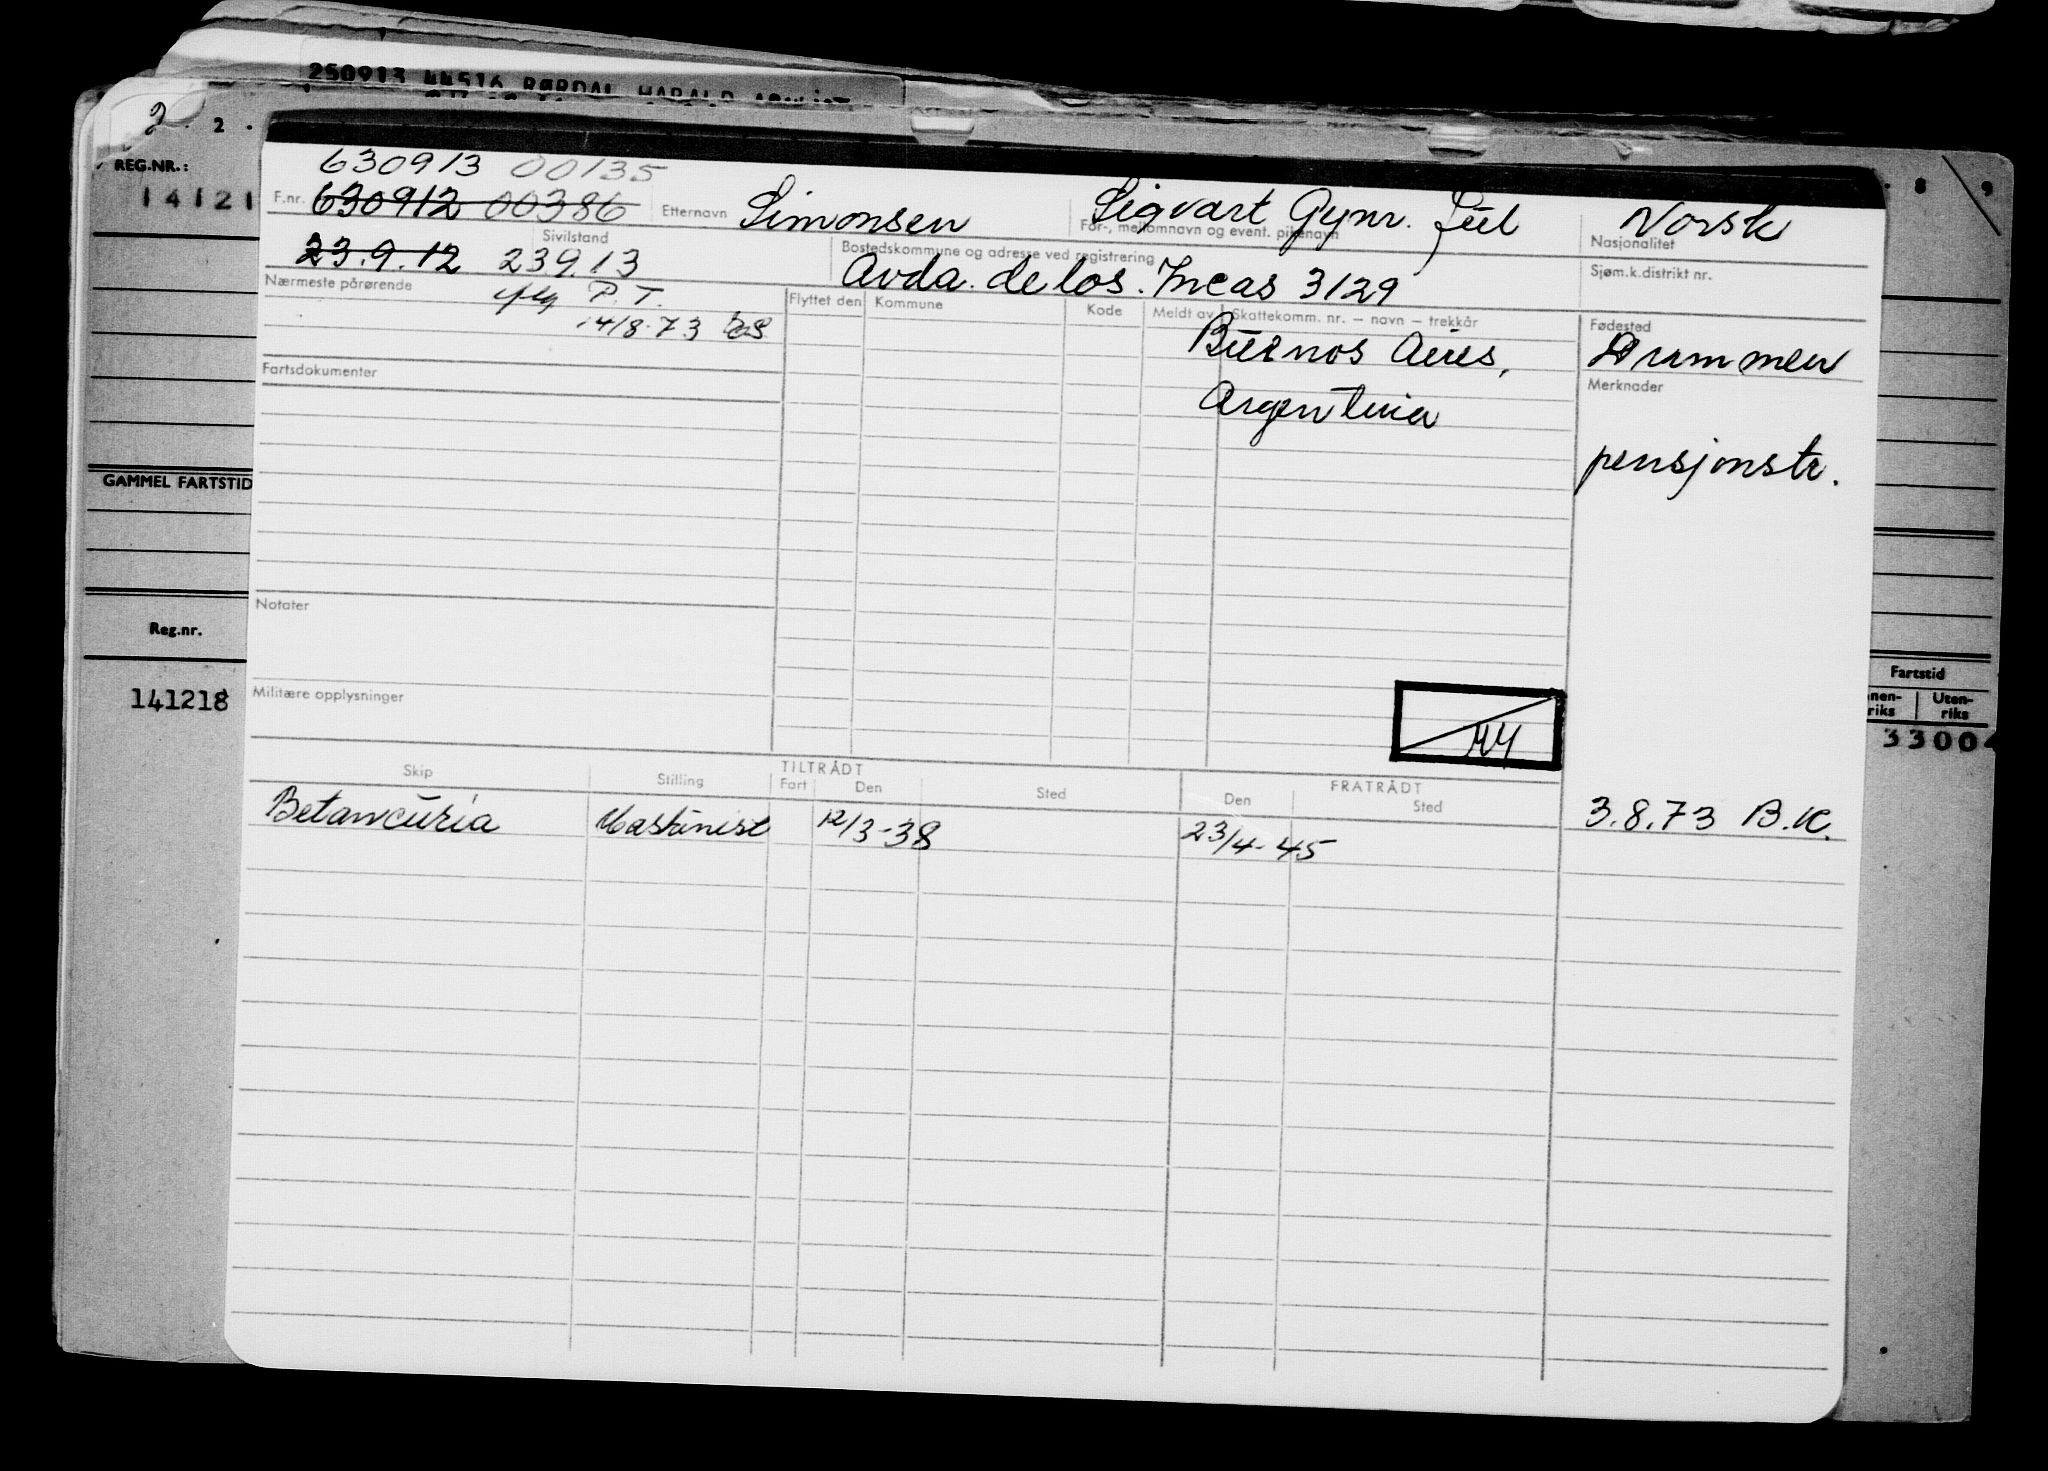 250913 44516 RØRDAL HARALD
2 . 2 .
8 9
REG.NR.:
14121
630913 00135
F.nr. 630912 00386 Etternavn Simonsen Sigvart Gynr. Juel Norsk
For-, mellomnavn og event. pikenavn
Nasjonalitet
23.9.12 23913 Sivilstand
Bostedskommune og adresse ved registrering
Avda. de los. Incas 3129
Sjøm.k.distrikt nr.
Nærmeste pårørende
P.T.
14/8-73
Flyttet den Kommune Kode Meldt av Skattekomm. nr. – navn – trekkår
Buenos Aires,
Argentina
Fødested
Drammen
Merknader
pensjonstr.
Fartsdokumenter
GAMMEL FARTSTID
Notater
Reg.nr.
141218
Militære opplysninger
Fartstid
nen-
riks
Uten-
riks
3300
Skip Stilling TILTRÅDT Fart Den Sted FRATRÅDT Den Sted
Betancuria Maskinist 12/3-38 23/4-45 3.8.73 B.K.